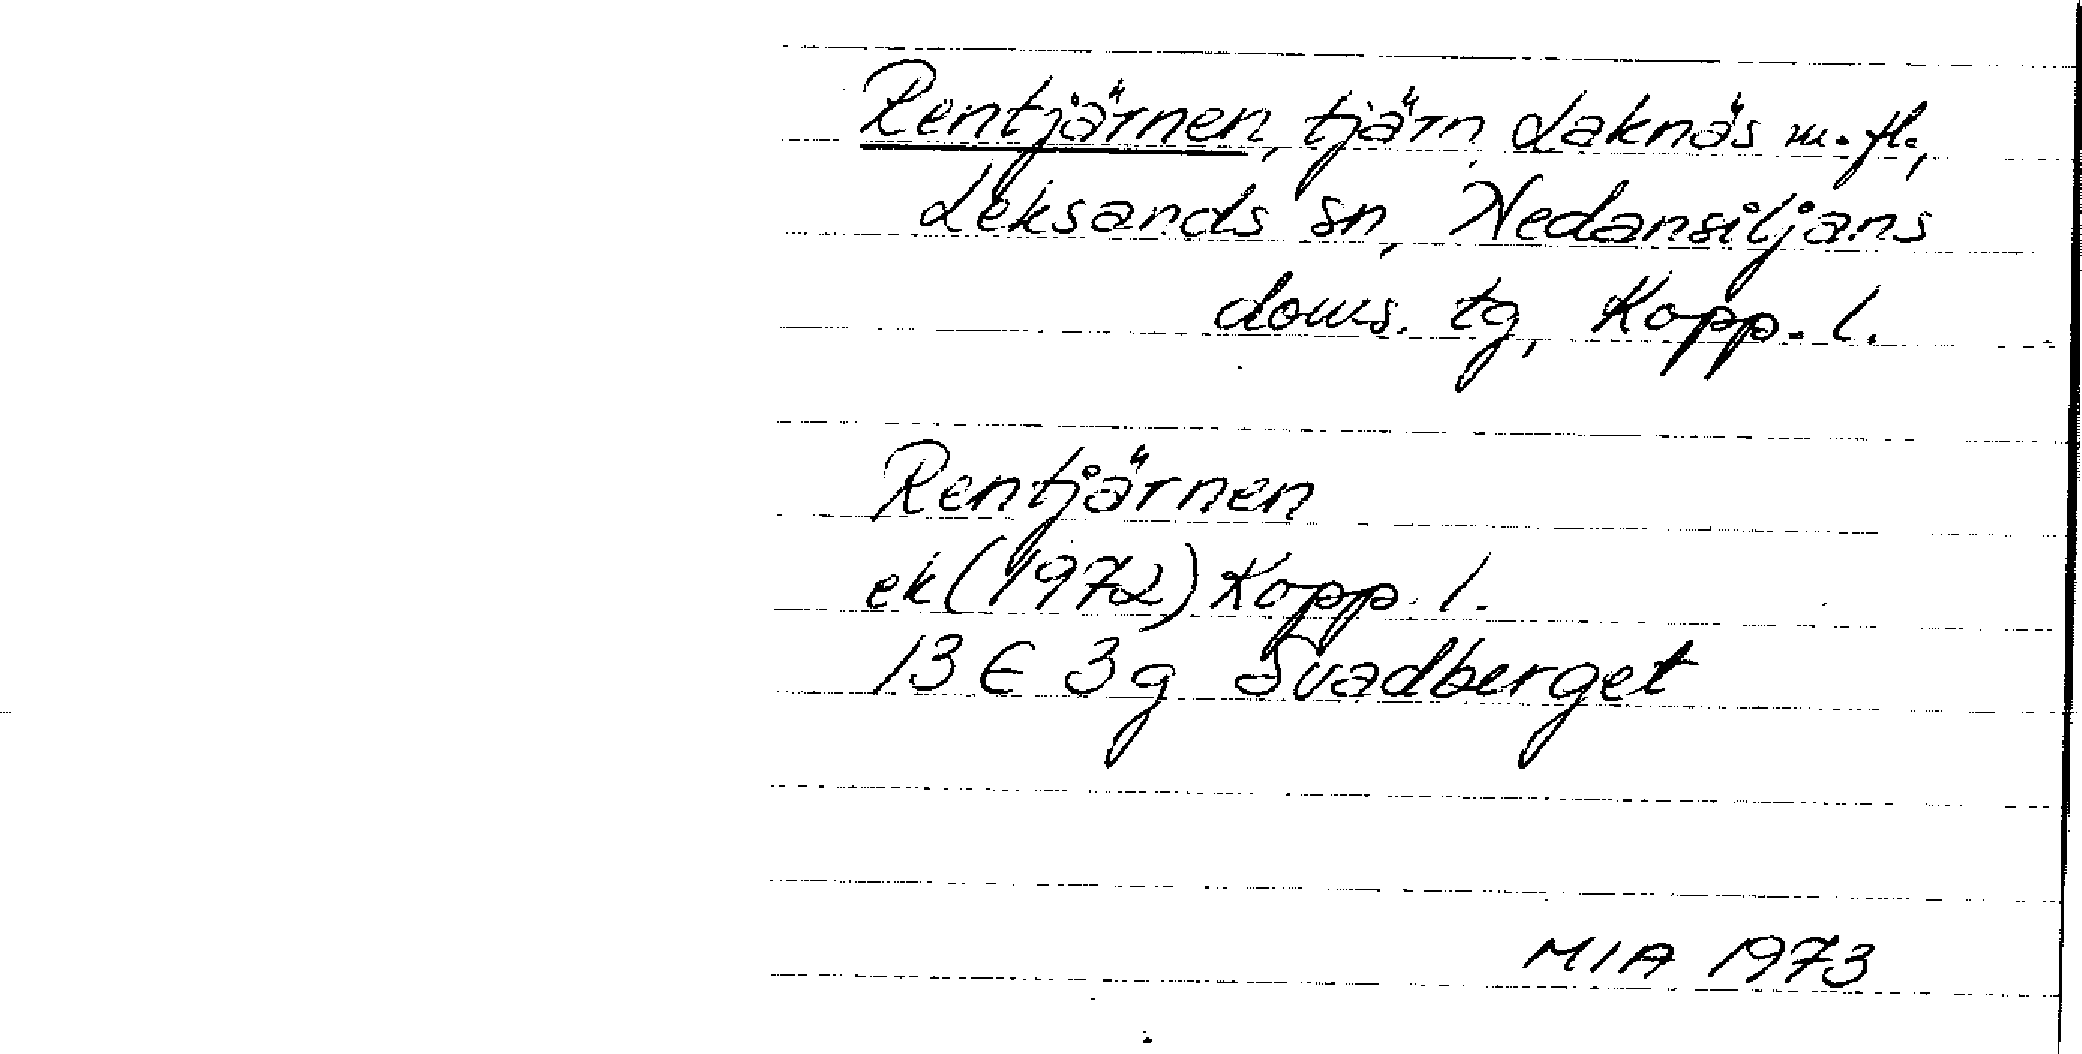 Rentjärnen, tjärn, Laknäs m.fl.,
Leksands sn, Nedansiljans
doms. tg, Kopp. l.
Rentjärnen
ek (1972) Kopp. l.
13 E 3g Svadberget
MIA 1973